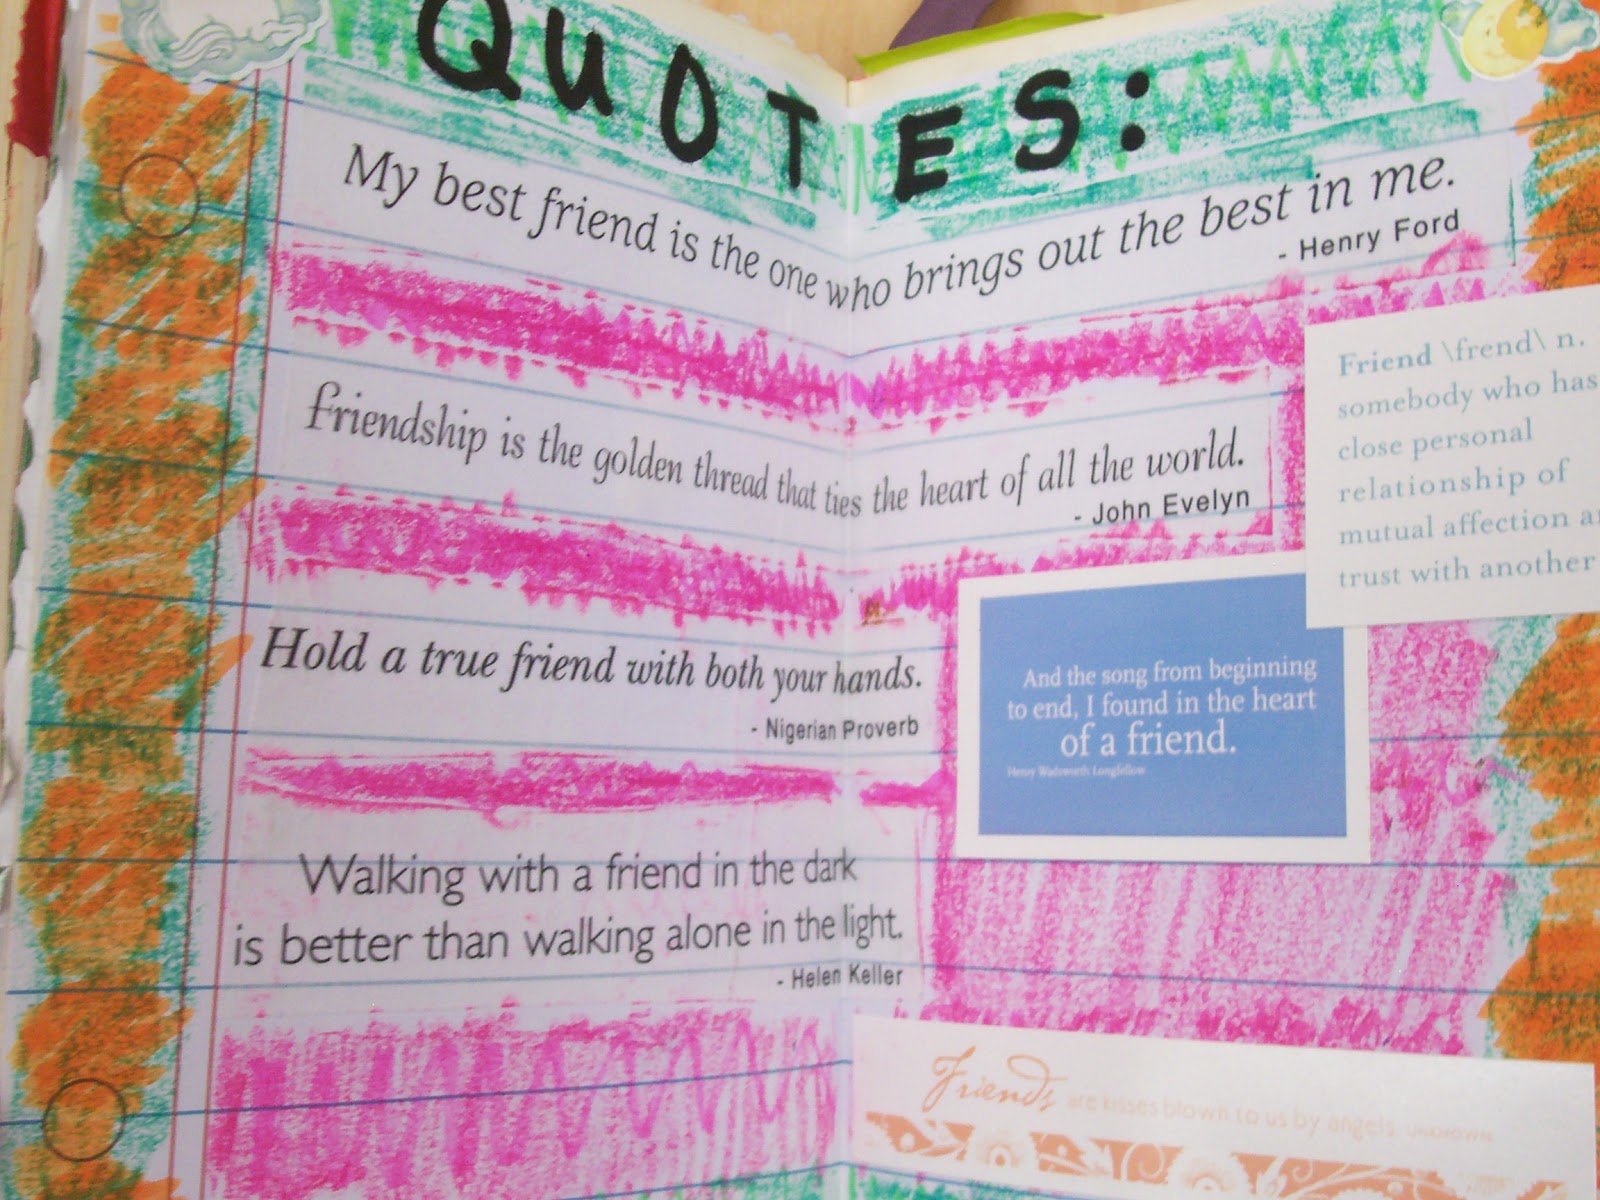 QUOTES:
My best friend is the one who brings out the best in me.
- Henry Ford
Friendship is the golden thread that ties the heart of all the world.
- John Evelyn
Hold a true friend with both your hands.
- Nigerian Proverb
Walking with a friend in the dark
is better than walking alone in the light.
- Helen Keller
Friend \frend\ n.
somebody who has
close personal
relationship of
mutual affection
trust with another
And the song from beginning
to end, I found in the heart
of a friend.
Henry Wadsworth Longfellow
Friends are kisses blown to us by angels. UNKNOWN